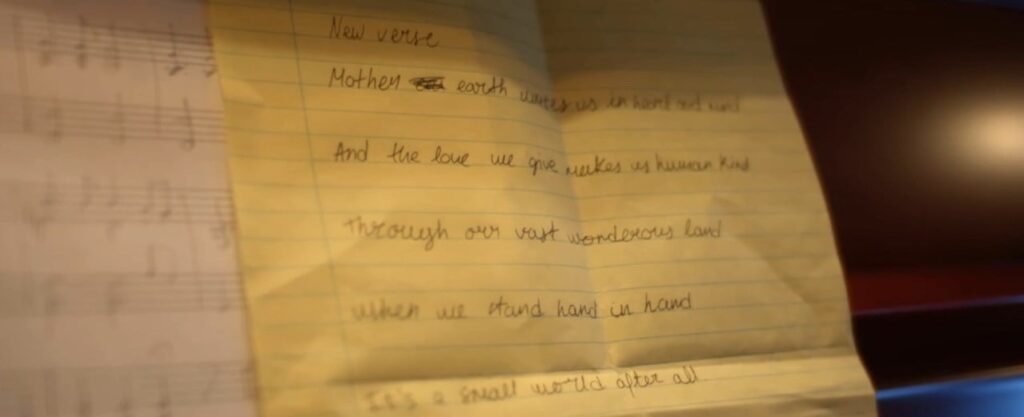 New verse
Mother earth unites us in heart and mind
And the love we give makes us human kind
Through our vast wonderous land
When we stand hand in hand
It's a small world after all